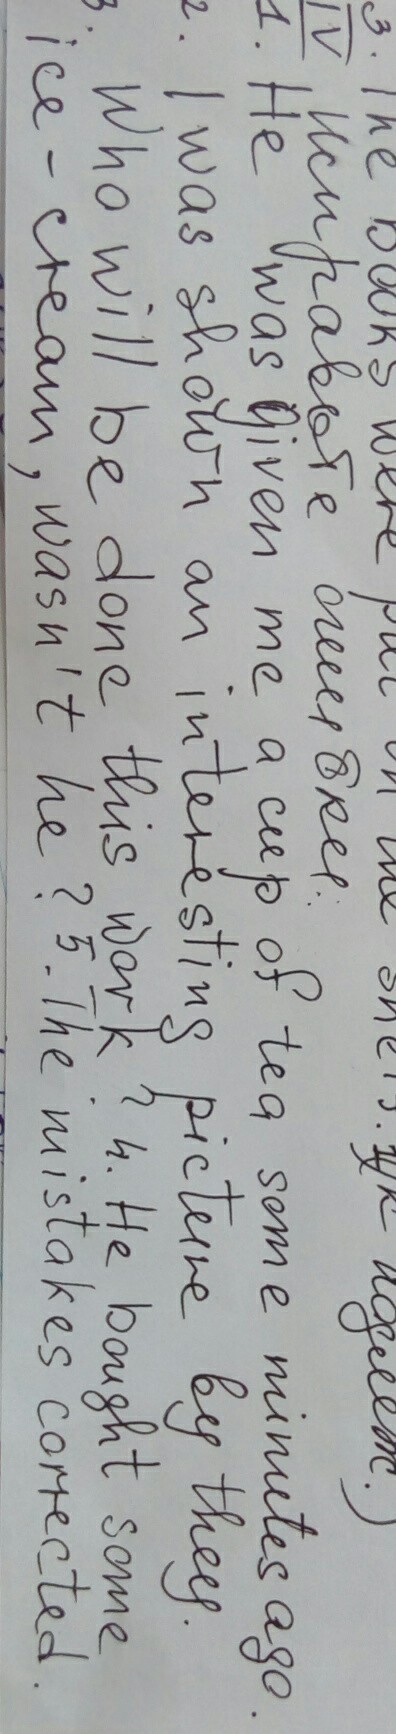 3. The books were put on the shelf. (к подлеж.)
IV Исправьте ошибки:
1. He was given me a cup of tea some minutes ago.
2. I was shown an interesting picture by they.
3. Who will be done this work? 4. He bought some
ice-cream, wasn't he? 5. The mistakes corrected.